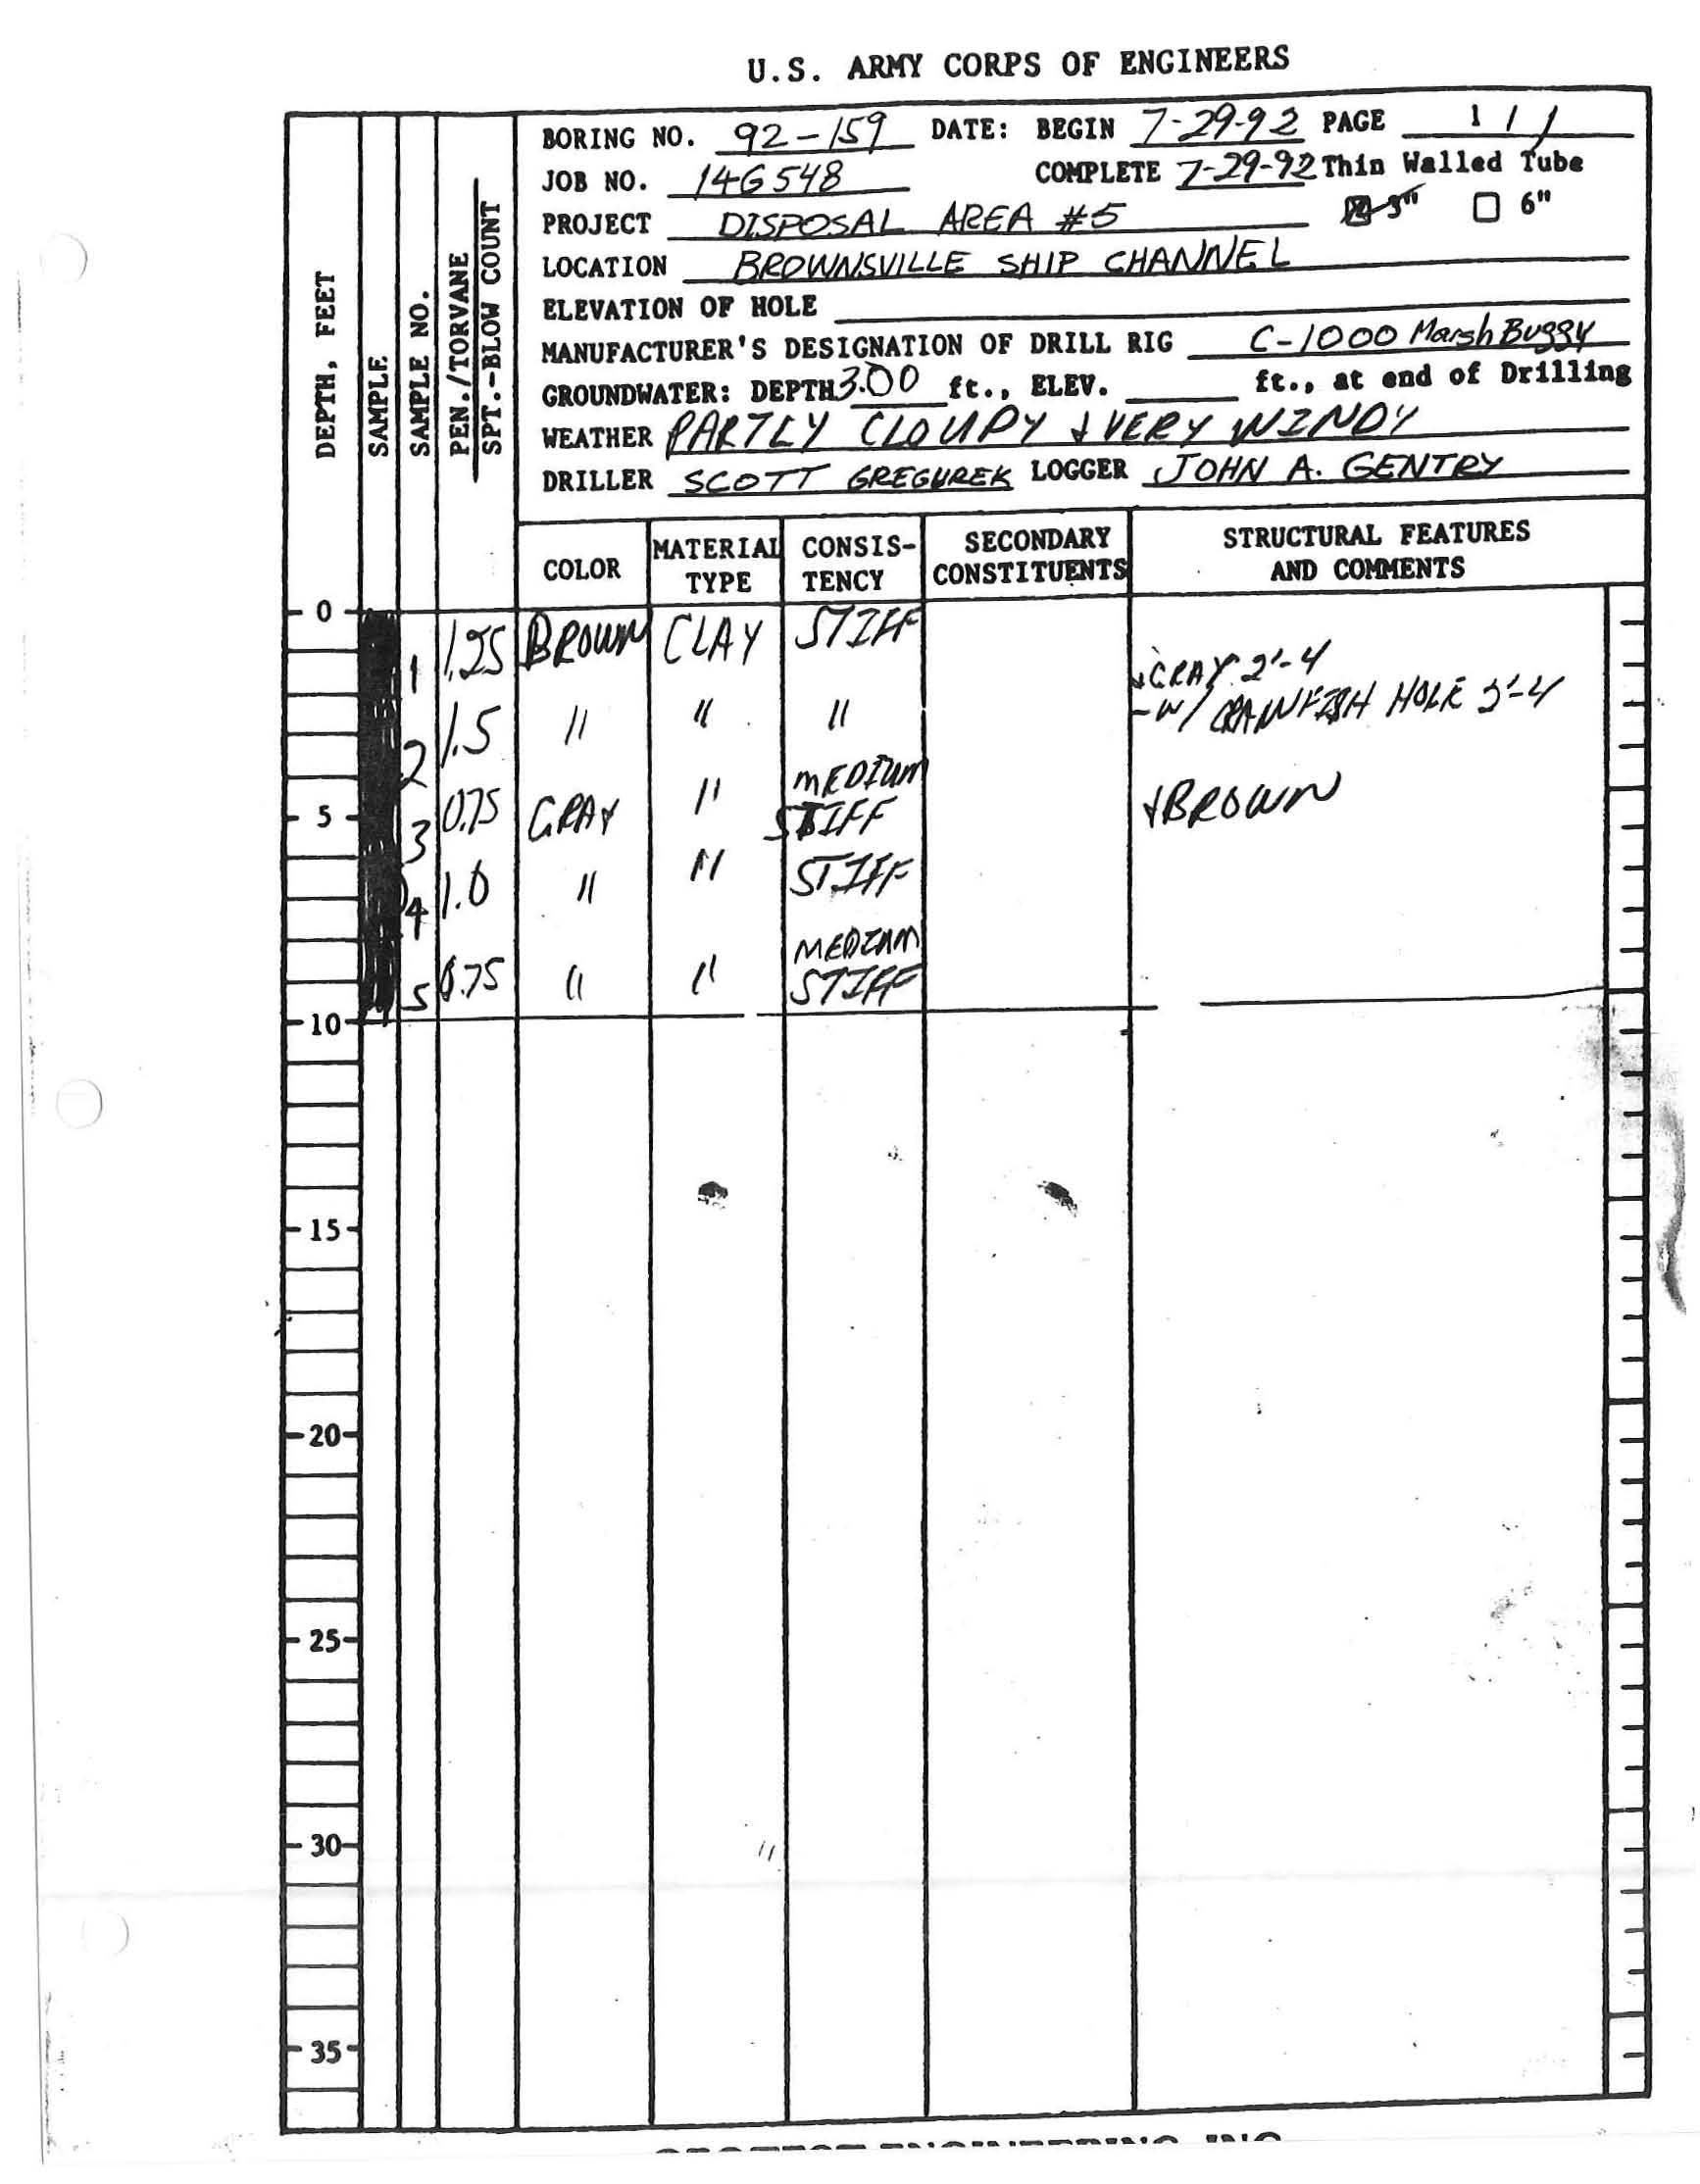 U.S. ARMY CORPS OF ENGINEERS
BORING NO. 92-159 DATE: BEGIN 7-29-92 PAGE 1 / 1
JOB NO. 14G548 COMPLETE 7-29-92 Thin Walled Tube
PROJECT DISPOSAL AREA #5 ☒ 3" ☐ 6"
LOCATION BROWNSVILLE SHIP CHANNEL
ELEVATION OF HOLE
MANUFACTURER'S DESIGNATION OF DRILL RIG C-1000 Marsh Buggy
GROUNDWATER: DEPTH 3.00 ft., ELEV. ft., at end of Drilling
WEATHER PARTLY CLOUDY & VERY WINDY
DRILLER SCOTT GREGUREK LOGGER JOHN A. GENTRY
DEPTH, FEET
SAMPLE
SAMPLE NO.
PEN./TORVANE
SPT.-BLOW COUNT
COLOR MATERIAL TYPE CONSIS-TENCY SECONDARY CONSTITUENTS STRUCTURAL FEATURES AND COMMENTS
0
1 1.25 BROWN CLAY STIFF
& GRAY 2'-4
2 1.5 " " " - W/ CRAWFISH HOLE 2'-4
5 3 0.75 GRAY " MEDIUM STIFF & BROWN
4 1.0 " " STIFF
5 0.75 " " MEDIUM STIFF
10
15
20
25
30
"
35